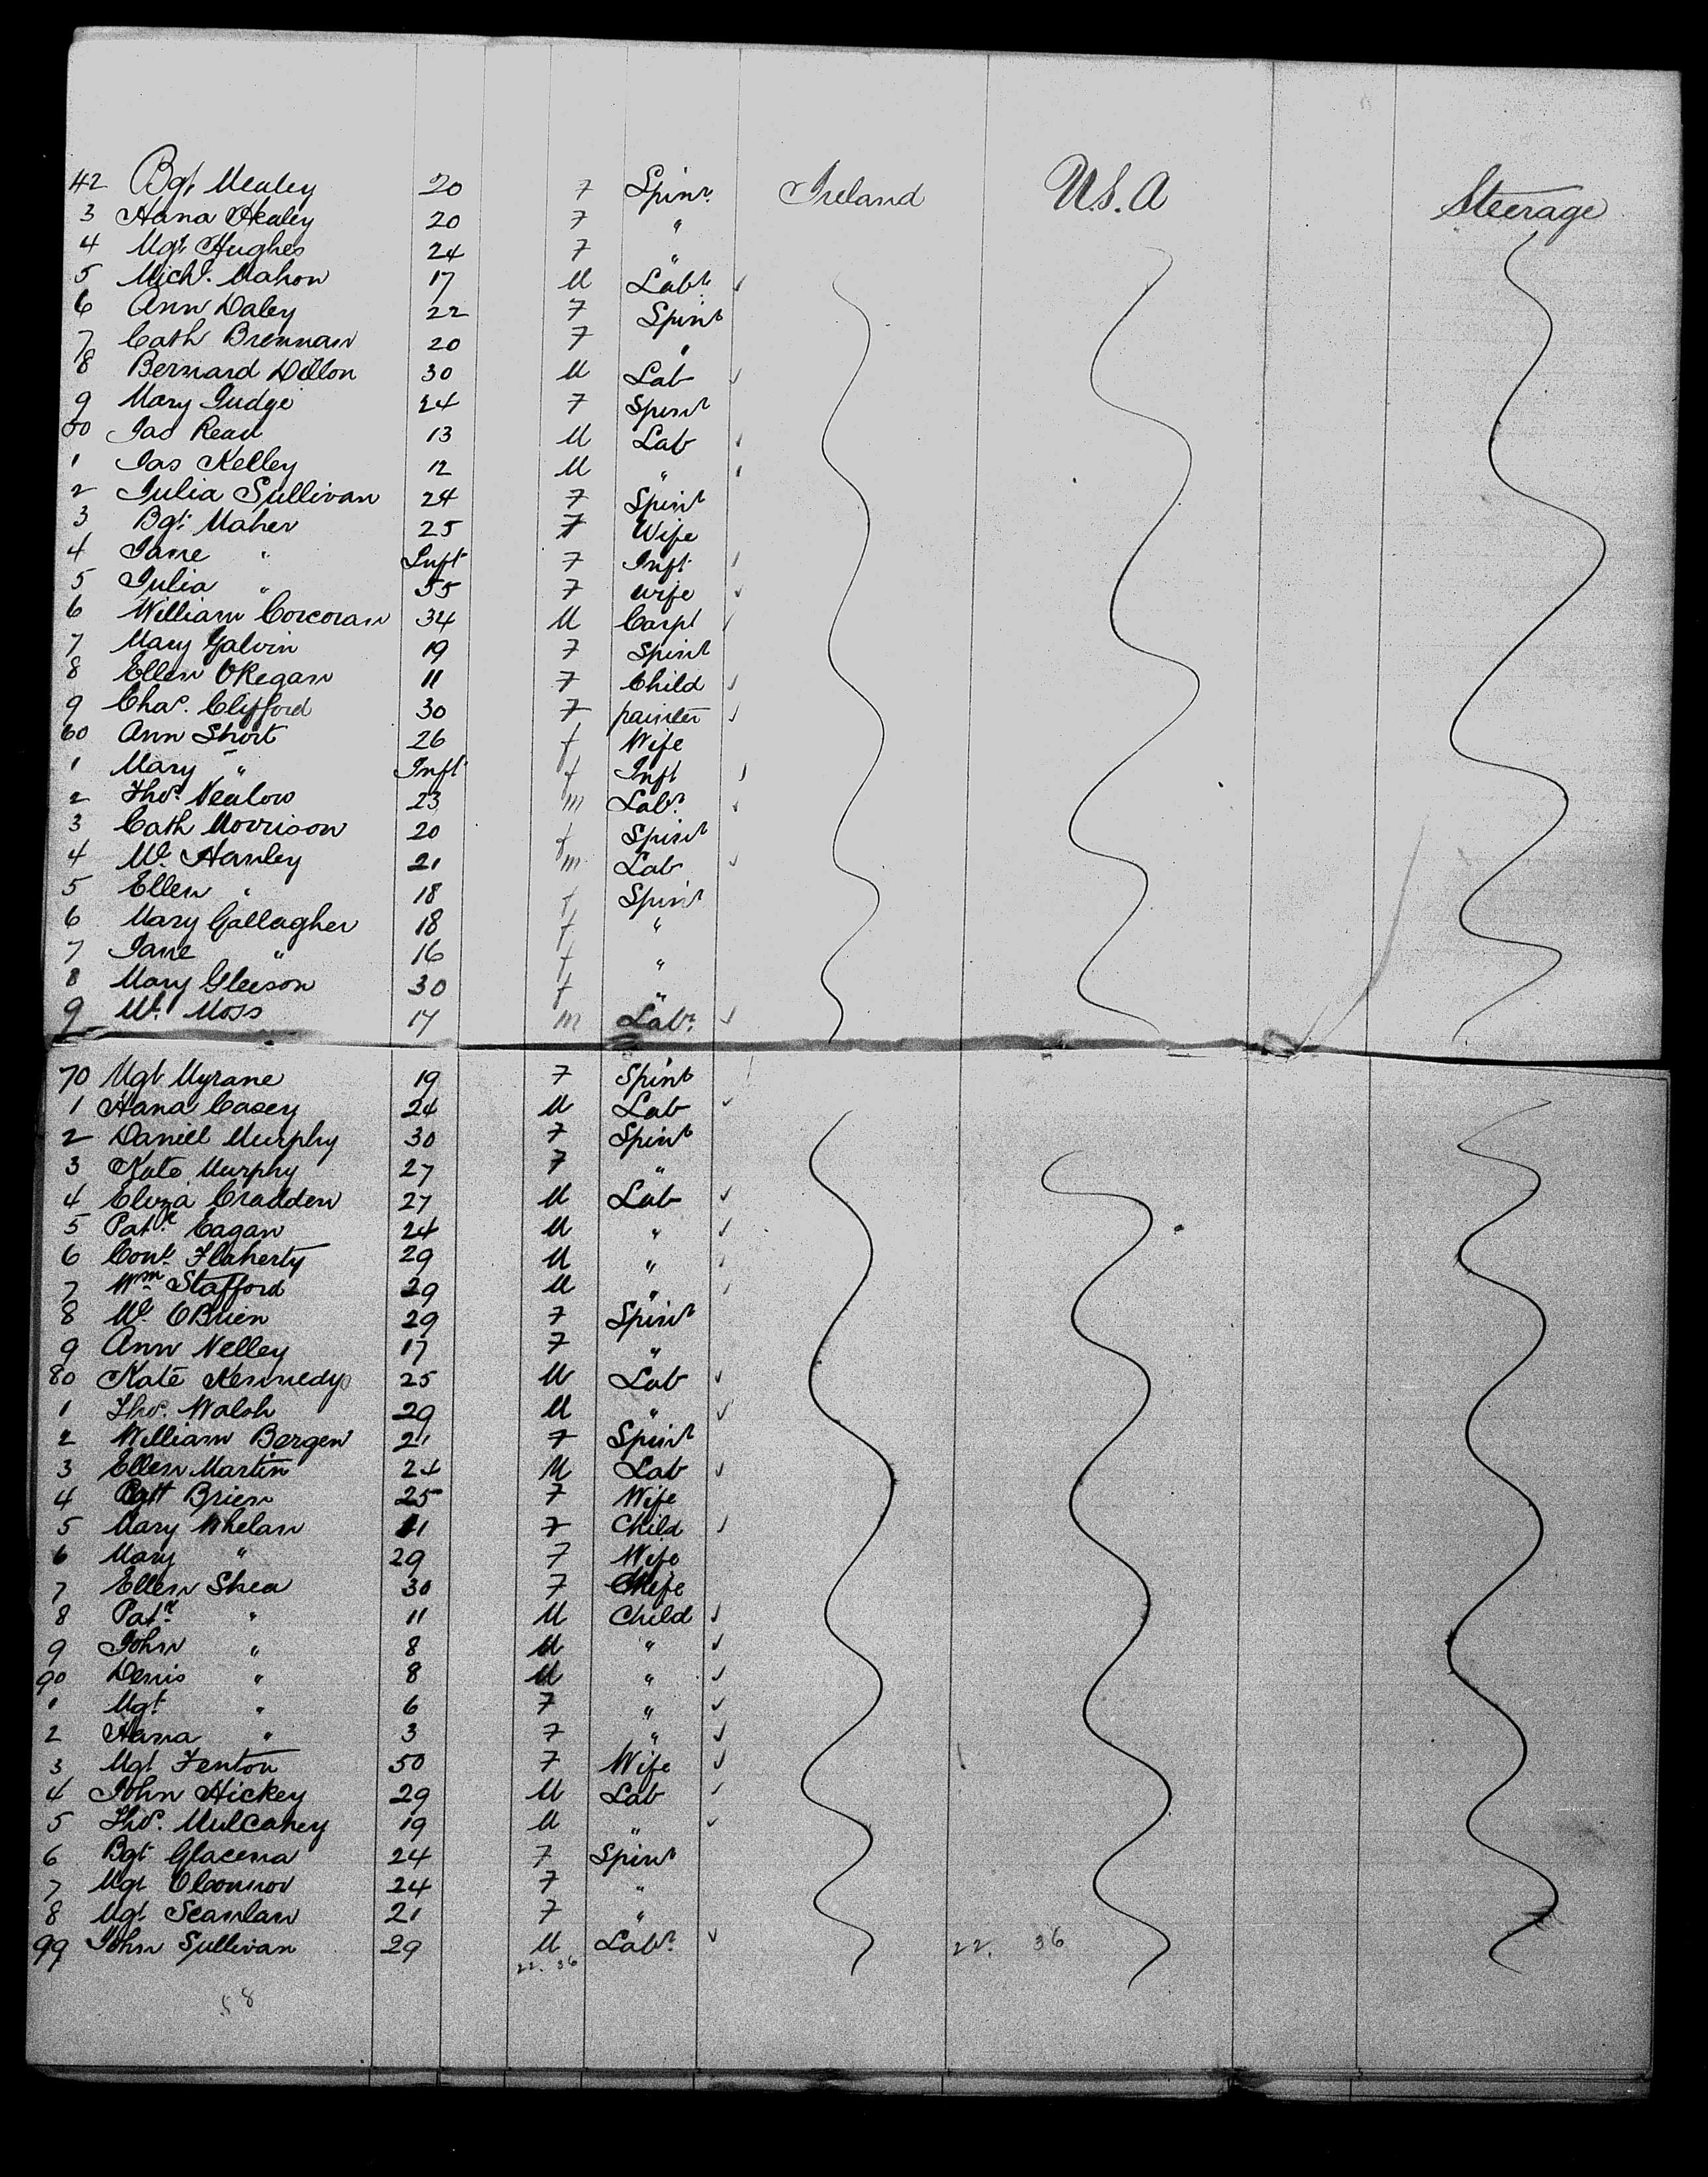 42 Bgt Mealey 20 7 Spinr. Ireland U.S.A Steerage
3 Hana Healey 20 7 "
4 Mgt Hughes 24 7 "
5 Michl. Mahon 17 M Labr
6 Ann Daley 22 7 Spinr
7 Cath Brennan 20 7 "
8 Bernard Dillon 30 M Lab
9 Mary Judge 24 7 Spinr
50 Jas Read 13 M Lab
1 Jas Kelley 12 M "
2 Julia Sullivan 24 7 Spinr
3 Bgt Maher 25 7 Wife
4 Jane " Inft 7 Inft
5 Julia " 55 7 wife
6 William Corcoran 34 M Carpt
7 Mary Galvin 19 7 Spinr
8 Ellen OKegan 11 7 Child
9 Chas. Clifford 30 7 painter
60 Ann Short 26 f Wife
1 Mary " Inft f Inft
2 Thos. Nealow 23 m Labr.
3 Cath Morrison 20 f Spinr
4 Ml. Hanley 21 m Lab
5 Ellen " 18 f Spinr
6 Mary Gallagher 18 f "
7 Jane " 16 f "
8 Mary Gleeson 30 f "
9 Ml. Moss 17 m Labr.
70 Mgt Myrane 19 7 Spinr
1 Hana Casey 24 M Lab
2 Daniel Murphy 30 7 Spinr
3 Kate Murphy 27 7 "
4 Eliza Cradden 27 M Lab
5 Patk Eagan 24 M "
6 Conl. Flaherty 29 M "
7 Wm Stafford 29 M "
8 Ml. OBrien 29 7 Spinr
9 Ann Nelley 17 7 "
80 Kate Kennedy 25 M Lab
1 Thos. Walsh 29 M "
2 William Bergen 21 7 Spinr
3 Ellen Martin 24 M Lab
4 Patt Brien 25 7 Wife
5 Mary Whelan 11 7 Child
6 Mary " 29 7 Wife
7 Ellen Shea 30 7 Wife
8 Patk " 11 M Child
9 John " 8 M "
90 Denis " 8 M "
1 Mgt " 6 7 "
2 Hana " 3 7 "
3 Mgt Fenton 50 7 Wife
4 John Hickey 29 M Lab
5 Thos. Mulcahey 19 M "
6 Bgt Glacena 24 7 Spinr
7 Mgt OConnor 24 7 "
8 Mgt Scanlan 21 7 "
99 John Sullivan 29 M Labr. 22. 36
22. 36
58